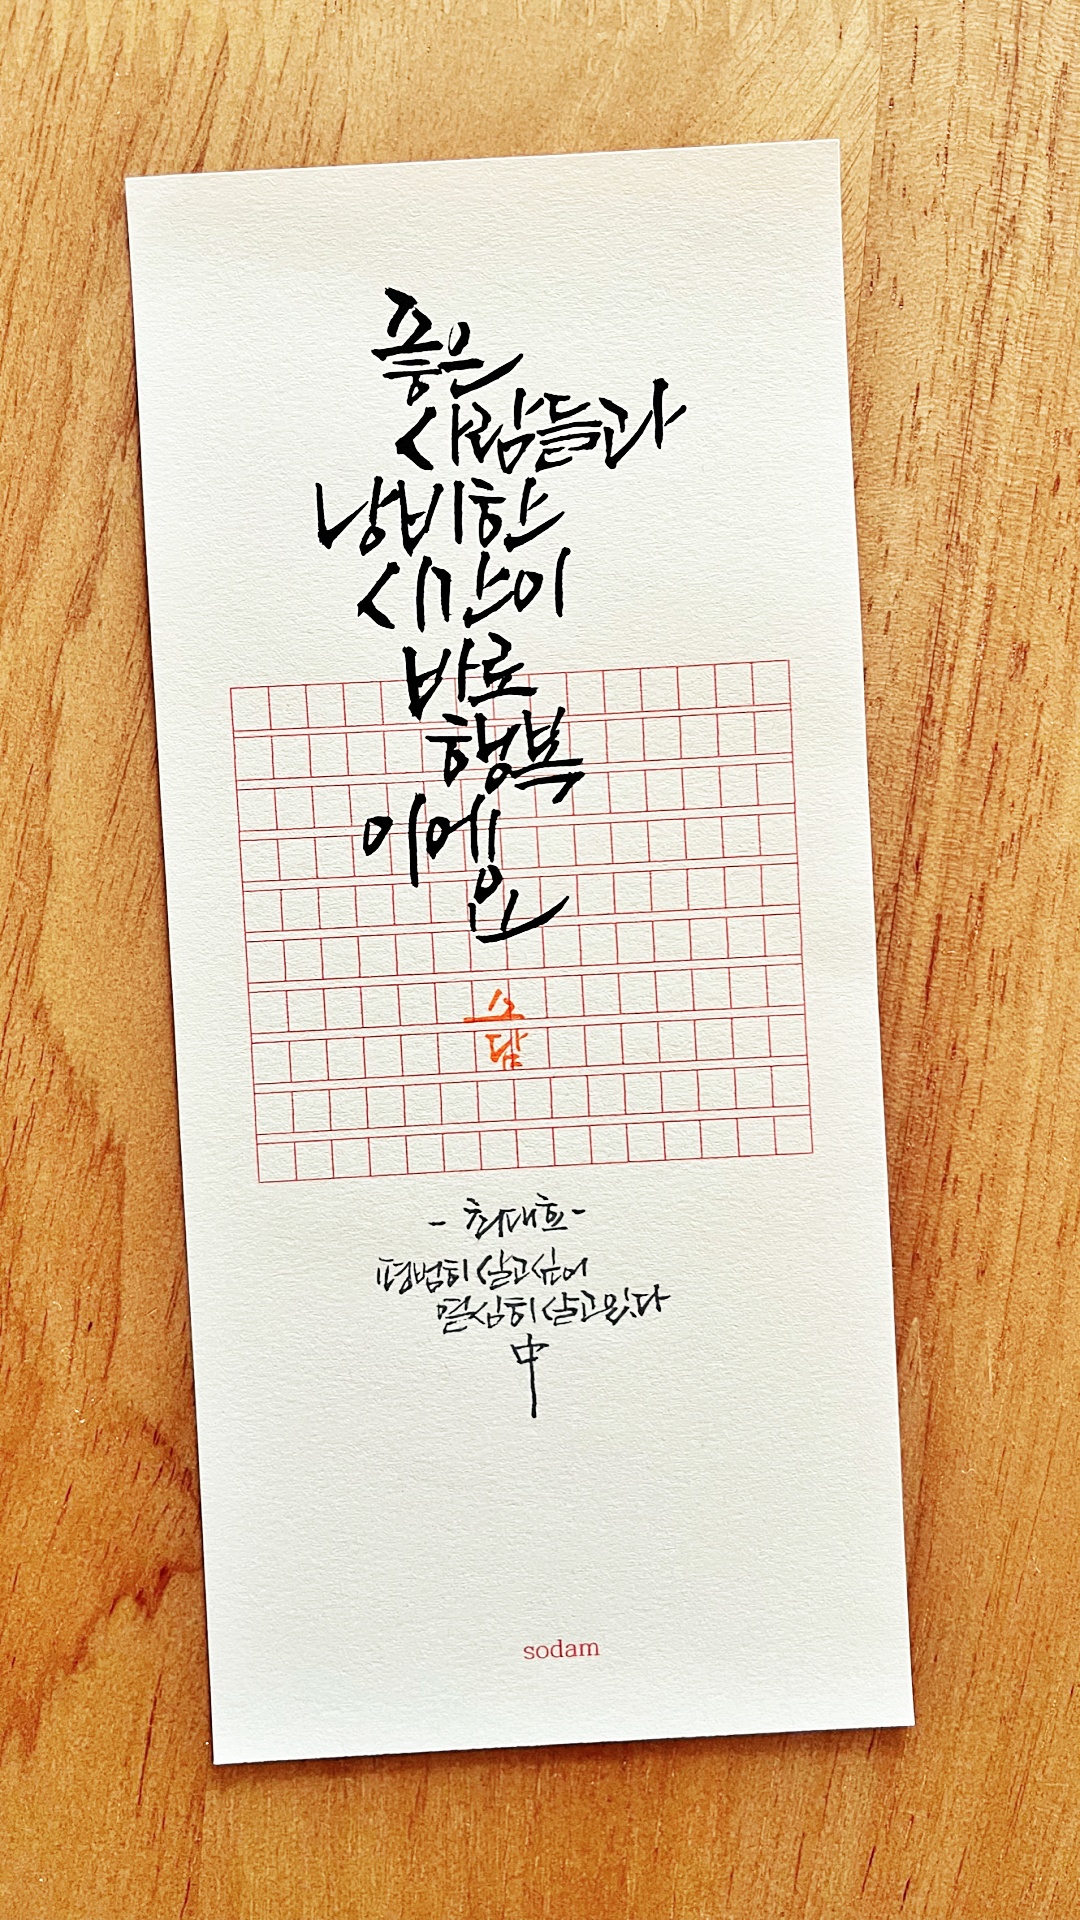 좋은
사람들과
낭비한
시간이
바로
행복
이에
요
소
담
- 최대호 -
평범히 살고 싶어
열심히 살고 있다
中
sodam